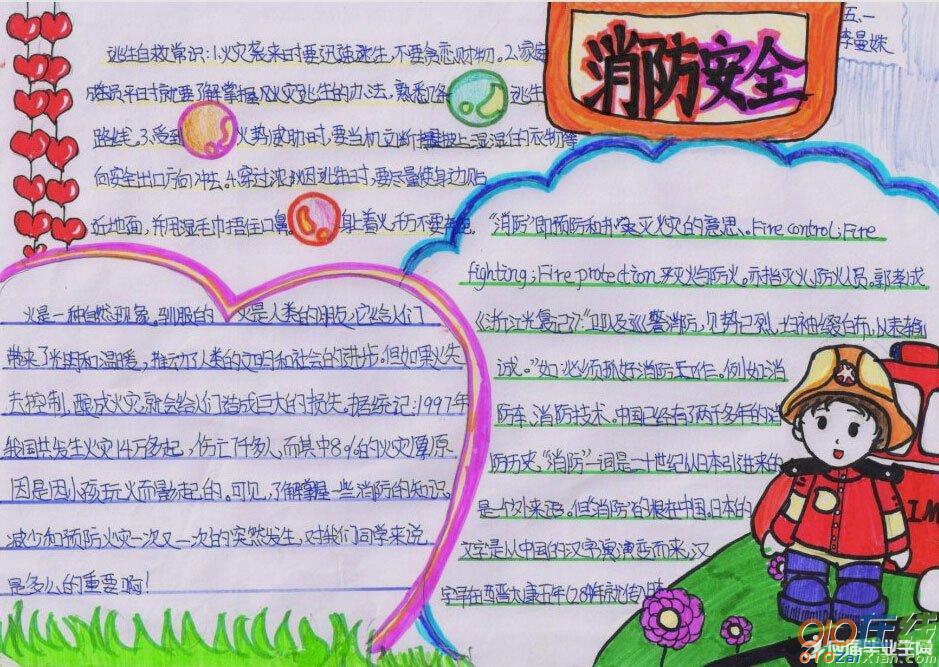 消防安全
五、一
李曼姝
逃生自救常识:1.火灾袭来时要迅速逃生,不要贪恋财物。2.家庭
成员平时就要了解掌握火灾逃生的办法,熟悉逃生
路线。3.受到火势威胁时,要当机立断披上湿的衣物等
向安全出口方向冲去。4.穿过浓烟逃生时,要尽量使身边贴
近地面,并用湿毛巾捂住口鼻 身上着火,千万不要奔跑,
火是一种自然现象,驯服的火是人类的朋友,它给人们
带来了光明和温暖,推动了人类的文明和社会的进步。但如果火失
去控制,酿成火灾,就会给人们造成巨大的损失。据统计:1997年
我国共发生火灾14万多起,伤亡7千多人,而其中8%的火灾原
因是因小孩玩火而引起的。可见,了解掌握一些消防的知识,
减少和预防火灾一次又一次的突然发生,对我们同学来说
是多么的重要啊!
“消防”即预防和扑灭火灾的意思。Fire control;Fire
fighting;Fire protection 灭火与防火。亦指灭火、防火人员。郭孝成
《浙江光复记》:卫队及巡警消防,见势已烈,白布,以表输
诚。”如:必须抓好消防工作。例如消
防车、消防技术。中国已经有了两千多年的消
防历史,“消防”一词是二十世纪从日本引进来的
是个外来语。但消防的根在中国。日本的
文字是从中国的汉字演变而来,汉
字早在西晋太康五年(284年)就
应届毕业生网